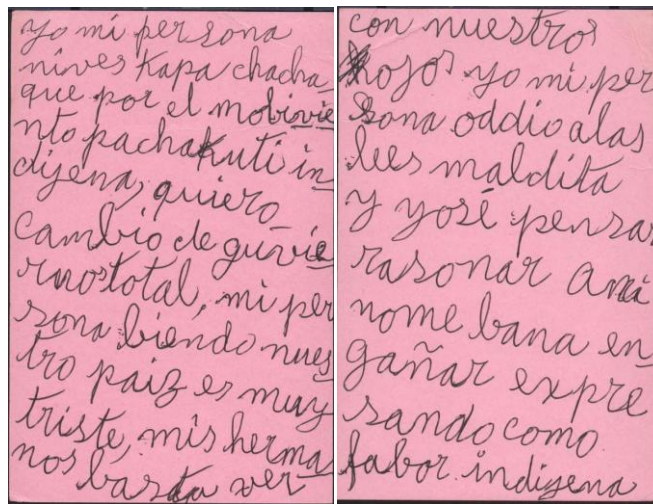 yo mi persona
nives Kapa chacha
que por el mobivie
nto pachakuti in
dijena, quiero
cambio de guvie
rno total, mi per
sona biendo nues
tro paiz es muy
triste, mis herma
nos basta ver
con nuestros
ojos yo mi per
sona oddio alas
lees maldita
y yo sé pensar
rasonar a mi
no me bana en
gañar expre
sando como
fabor indijena